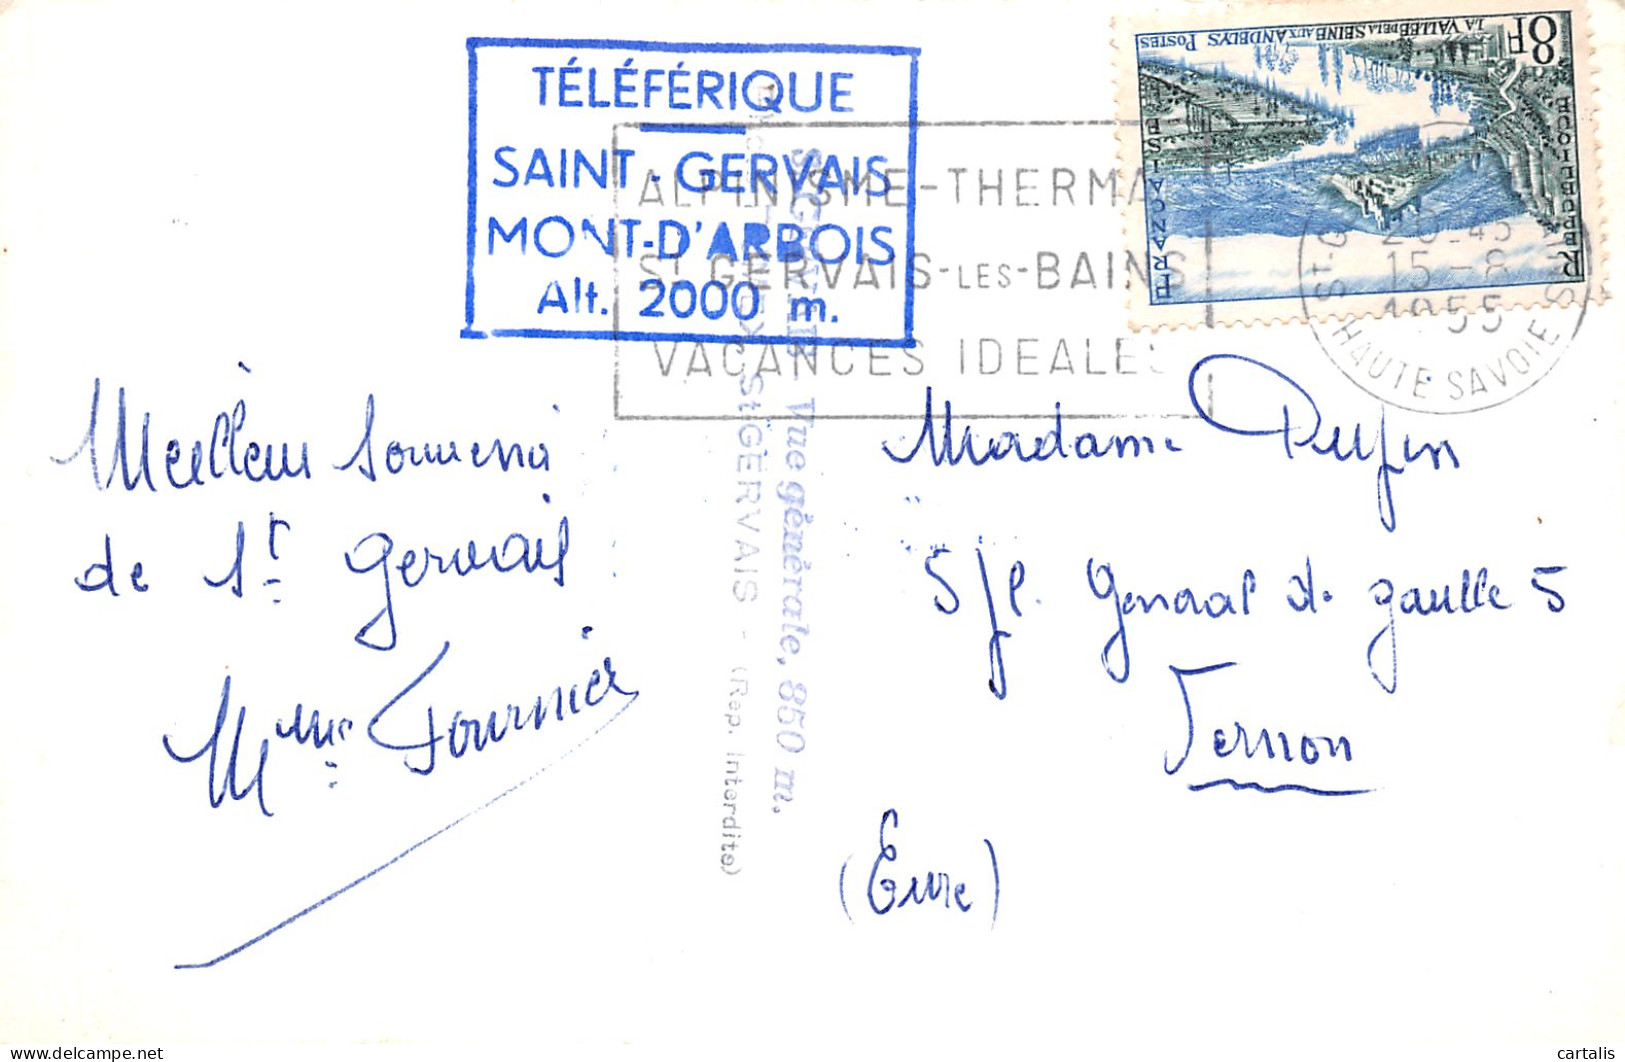 TÉLÉFÉRIQUE
SAINT-GERVAIS
MONT-D'ARBOIS
Alt. 2000 m.
ALPINISME-THERMA
ST GERVAIS-LES-BAINS
VACANCES IDEALES
8F
LA VALLÉE DE LA SEINE AUX ANDELYS POSTES
RÉPUBLIQUE FRANÇAISE
ST-G
20-45
15-8
1955
HAUTE SAVOIE
Vue générale, 850 m.
St GERVAIS - (Rep. Interdite)
Meilleur souvenir
de St Gervais
Mme Fournier
Madame
5 General de Gaulle 5
Vernon
(Eure)
cartalis
delcampe.net